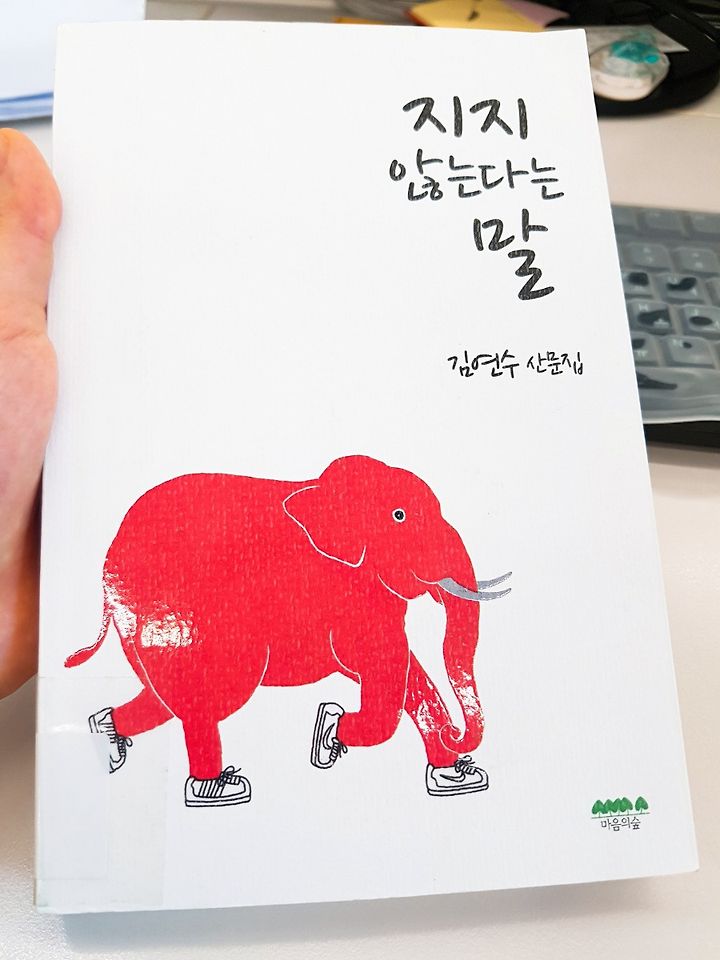 지지
않는다는
말
김연수 산문집
마음의숲